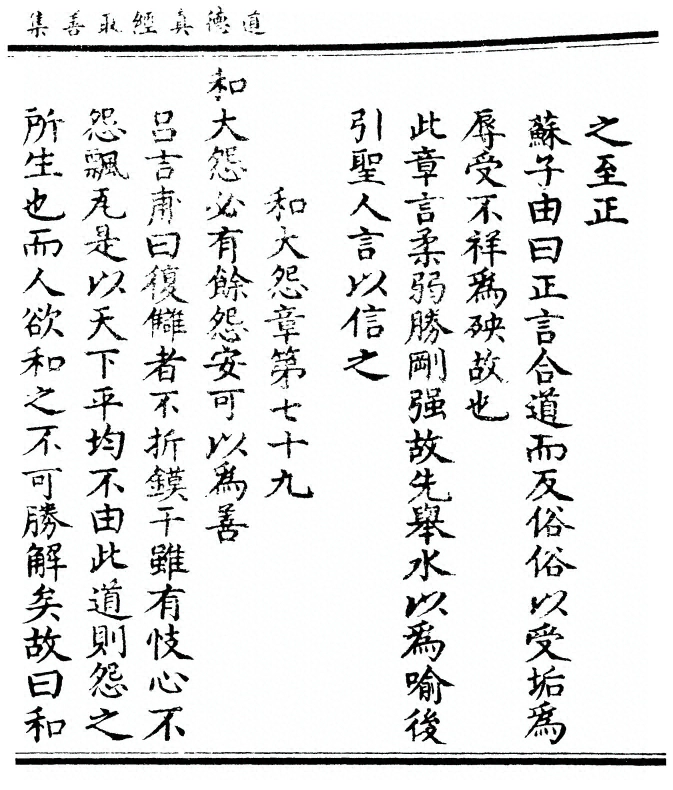 道德真經取善集
之至正
蘇子由曰正言合道而反俗俗以受垢爲
辱受不祥爲殃故也
此章言柔弱勝剛强故先舉水以爲喻後
引聖人言以信之
和大怨章第七十九
和大怨必有餘怨安可以爲善
呂吉甫曰復讎者不折鏌干雖有忮心不
怨飄瓦是以天下平均不由此道則怨之
所生也而人欲和之不可勝解矣故曰和